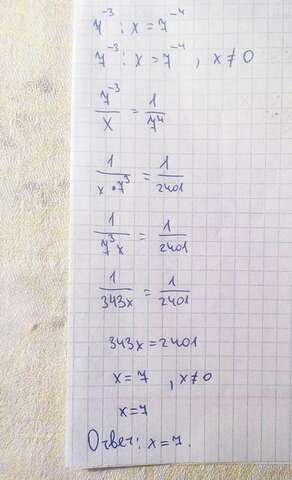 7⁻³ : x = 7⁻⁴
7⁻³ : x = 7⁻⁴ , x ≠ 0
7⁻³/x = 1/7⁴
1/(x • 7³) = 1/2401
1/(7³x) = 1/2401
1/(343x) = 1/2401
343x = 2401
x = 7 , x ≠ 0
x = 7
Ответ: x = 7.